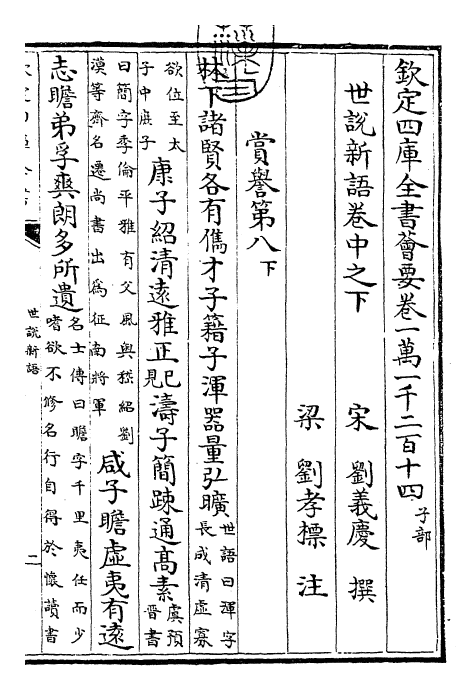 欽定四庫全書薈要卷一萬一千二百十四 子部
世說新語卷中之下
宋 劉義慶 撰
梁 劉孝標 注
賞譽第八 下
林下諸賢各有儁才子籍子渾器量弘曠世語曰渾字長成清虛寡
欲位至太子中庶子康子紹清遠雅正已見濤子簡疎通髙素虞預晉書
曰簡字季倫平雅有父風與嵇紹劉漠等齊名遷尚書出為征南將軍咸子瞻虛夷有遠
志瞻弟孚爽朗多所遺名士傳曰瞻字千里夷任而少嗜欲不修名行自得於懷讀書
世說新語
二